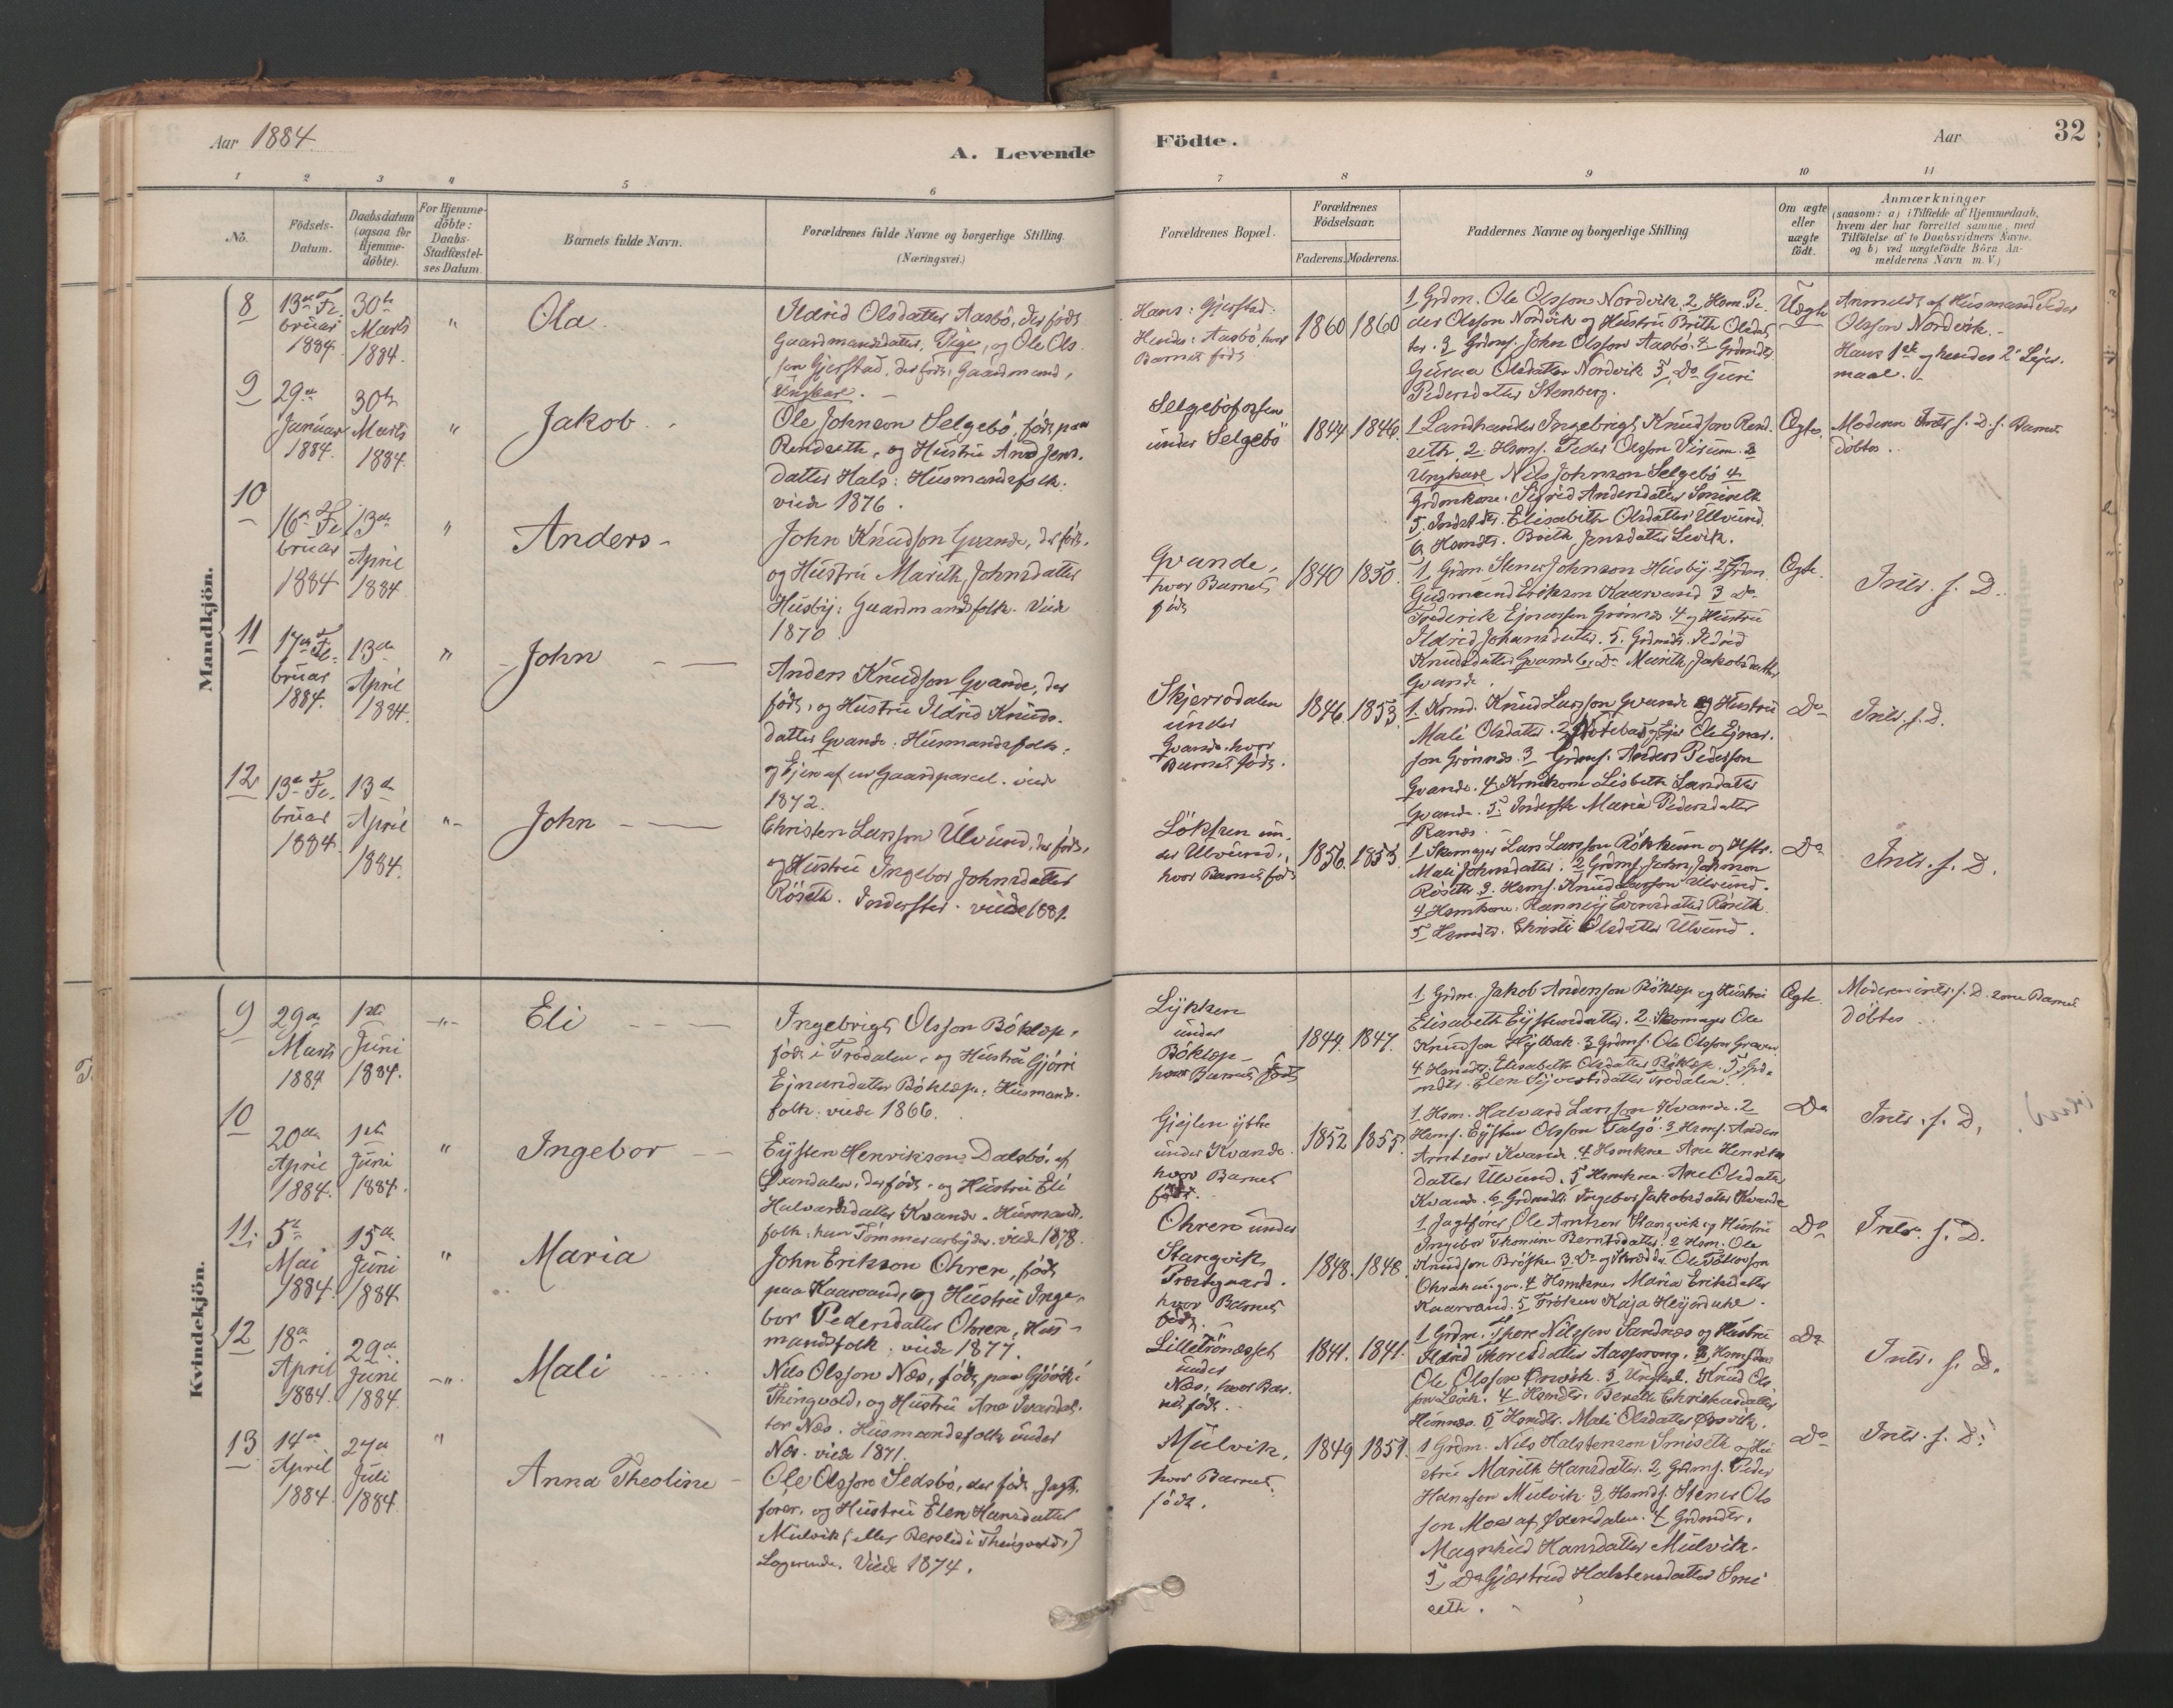 Aar 1884.
A. Levende
Födte.
Aar
32
1
2
3
4
5
6
7
8
9
10
11
No.
Födsels-
Datum.
Daabsdatum
(ogsaa for
Hjemme-
döbte).
For Hjemme-
döbte:
Daabs-
Stadfæstel-
ses Datum.
Barnets fulde Navn.
Forældrenes fulde Navne og borgerlige Stilling.
(Næringsvei.)
Forældrenes Bopæl.
Forældrenes
Födselsaar.
Faderens.
Moderens.
Faddernes Navne og borgerlige Stilling
Om ægte
eller
uægte
födt.
Anmærkninger
(saasom: a) i Tilfælde af Hjemmedaab,
hvem der har forrettet samme, med
Tilföielse af to Daabsvidners Navne,
og b) ved uægtefödte Börn An-
melderens Navn m. V.)
Mandkjön.
8
13de Fe-
bruar
1884.
30te
Marts
1884.
"
Ola
Ildrid Olsdatter Aasbö, der födt
Gaardmandsdatter, Pige, og Ole Ols-
son Gjerstad, der födt, Gaardmand,
Ungkarl.
Hans: Gjerstad.
Hendes: Aasbö, hvor
Barnet födt
1860
1860
1 Grdm. Ole Olsson Nordvik 2 Hsm. Pe-
der Olsson Nordvik og Hustru Brith Olsdat-
ter. 3 Grdms. John Olsson Aasbö. 4 Grdmdtr.
Olsdatter Nordvik 5 Do Guri
Pedersdatter Stenberg.
Uægte
Anmeldt af Husmand Peder
Olsson Nordvik. -
Hans 1ste og hendes 2 Leier-
maal.
9
29de
Januar
1884.
30te
Marts
1884.
"
Jakob
Ole Johnson Selgebö, födt paa
Rendseth, og Hustru Ane Jens-
datter Hals: Husmandsfolk.
viede 1876.
Selgeböfossen
under Selgebö
1844
1846.
1 Landhandler Ingebrigt Knudson Rend-
seth 2 Hsms. Peder Olsson Virum 3
Ungkarl Nils Johnson Selgebö 4
Grdmkone. Sigrid Andersdatter Smiseth
5. Elisabeth Olsdatter Ulvund.
6 Hsmdtr. Brith Jensdatter Levik.
Ægte.
Moderen Intr. f. D. f. Barnet
döbtes.
10
16de Fe-
bruar
1884
13de
April
1884.
"
Anders
John Knudson Qvande, der födt,
og Hustru Marith Johnsdatter
Husby: Gaardmandsfolk. Viede
1870.
Qvande,
hvor Barnet
födt
1840
1850.
1 Grdm. Stener Johnson Husby. 2 Grdm.
Gudmund Erikson Kaarvand 3 Do
Frederik Ejnarsson Grönnes 4 og Hustru
Ildrid Johansdatter. 5. Grdmdtr. Ildrid
Knudsdatter Qvande 6. Do Marith Jakobsdatter
Qvande.
Ægte.
Intr. f. D.
11
17de Fe-
bruar
1884.
13de
April
1884.
"
John
Anders Knudson Qvande, der
födt, og Hustru Ildrid Knuds-
datter Qvande: Husmandsfolk,
og Ejere af en Gaardparcel. viede
1872.
Skjerrodalen
under
Qvande, hvor
Barnet födt.
1846.
1853.
1. Krmd. Knud Larsson Qvande og Hustru
Mali Olsdatter. 2 Ole Ejnar-
son Grönnes 3 Grdms. Anders Pedersson
Qvande. 4 Lisbeth Larsdatter
Qvande. 5. Inderste Maria Pedersdatter
Ranæs.
Do
Intr. f. D.
12
13de Fe-
bruar
1884.
13de
April
1884.
"
John
Christen Larsson Ulvund, der födt,
og Hustru Ingebor Johnsdatter
Röseth. Inderster. viede 1881.
Lökken un-
der Ulvund,
hvor Barnet födt
1856.
1853.
1 Skomager Lars Larsson Rökkum og Hstr.
Mali Johnsdatter. 2 Grdms. John Johnson
Röseth 3. Hsms. Knud Larsson Ulvund.
4 Hsmkone. Evensdatter Röseth
5 Hsmdtr. Christi Olsdatter Ulvund.
Do
Intr. f. D.
Kvindekjön.
9
29de
Marts
1884
1ste
Juni
1884.
"
Eli
Ingebrigt Olsson Böklep,
födt i Trodalen, og Hustru Gjörri
Ejnarsdatter Böklep: Husmands-
folk: viede 1866.
Lykken
under
Böklep
hvor Barnet födt
1844.
1847.
1. Grdm. Jakob Anderson Böklep og Hustru
Elisabeth Eystensdatter. 2. Skomager Ole
Knudson. 3 Grdms. Ole Olsson
4 Hsmdtr. Elisabeth Olsdatter Böklep. 5. Grd-
mdtr. Elen Sjversdatter Trodalen.
Ægte.
Moderen intr. f. D. som Barnet
döbtes
10
20de
April
1884.
1ste
Juni
1884.
"
Ingebor
Eysten Henrikson Dalsbö, af
Öxendalen, der födt, og Hustru Eli
Halvardsdatter Kvande. Husmands-
folk: han Tömmerarbejder. viede 1878.
Gjeilen ytre
under Kvande.
hvor Barnet
födt.
1852
1855.
1. Hsm. Halvard Larsson Kvande. 2
Hsms. Eysten Olsson Talgö 3 Hsms. Anders
Arntson Kvande. 4 Hsmkone Ane Henriks-
datter Ulvund. 5 Hsmkone. Ane Olsdatter
Kvande. 6. Grdmdtr. Ingebor Jakobsdatter Kvande
Do
Intr. f. D.
11.
5te
Mai
1884.
15de
Juni
1884
"
Maria
John Erikson Ohren, födt
paa Kaarvand, og Hustru Inge-
bor Pedersdatter Ohren, Hus-
mandsfolk, viede 1877.
Ohren under
Stangvik
Præstegaard.
hvor Barnet
födt.
1848.
1848.
1 Jagtförer Ole Arntson Stangvik og Hustru
Ingebor Thomine Berntsdatter. 2 Hsm. Ole
Knudson Bröske 3. Do og Skrædder Ole
4 Hsmkone Maria Eriksdatter
Kaarvand. 5 Fröken Kaja Heyerdahl.
Do
Intr. f. D.
12
18de
April
1884.
29de
Juni
1884.
"
Mali
Nils Olsson Næs, födt paa Gjövik i
Thingvold, og Hustru Ane Ivarsdat-
ter Næs. Husmandsfolk under
Næs. viede 1871.
Lilletrönæsset
under
Næs, hvor Bar-
net födt.
1841.
1841.
1 Grdm. Thore Nilsson Sandnæs og Hustru
Ildrid Thoresdatter Aasprong. 2
Ole Olsson Ørsvik. 3 Ungkarl. Knud Ols-
son Levik. 4. Hsmdtr. Bereth Christensdatter
Himnæs. 5 Hsmdtr. Mali Olsdatter Ørsvik.
Do
Intr. f. D.
13
14de
April
1884.
27de
Juli
1884
"
Anna Theoline
Ole Olsson Sedsbö, der födt, Jagt-
förer, og Hustru Elen Hansdatter
Mulvik (eller Bersled i Thingvold)
Logerende. Viede 1874.
Mulvik,
hvor Barnet
födt.
1849
1851.
1 Grdm. Nils Halstenson Smiseth og Hu-
stru Marith Hansdatter. 2 Grdms. Peder
Hansson Mulvik 3 Hsmds. Stener Ols-
son Moes af Öxendalen. 4 Grdmdtr.
Magnhild Hansdatter Mulvik.
5 Do Gjertrud Halstensdatter Smi-
seth.
Do
Intr. f. D.